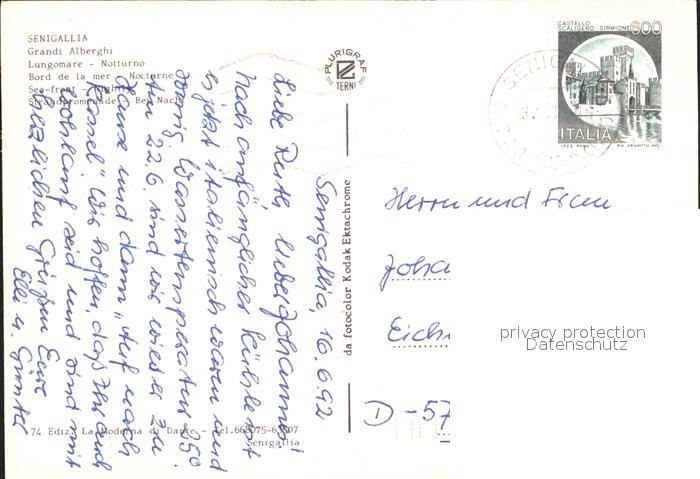 SENIGALLIA
Grandi Alberghi
Lungomare - Notturno
Bord de la mer - Nocturne
Sea-front - Night
Strandpromenade - Bei Nacht
PLURIGRAF
TERNI
CASTELLO
SCALIGERO - SIRMIONE
600
ITALIA
I.P.Z.S. ROMA
SENIG
Senigallia, 16.6.92
Liebe Ruth, lieber Johannes!
Nach anfänglicher Kühle ist
es jetzt italienisch warm und
sonnig. Wassertemperatur 25°.
Am 22.6 sind wir wieder zu
Hause und dann "auf nach
Kassel". Wir hoffen, daß Ihr auch
wohlauf seid und sind mit
herzlichen Grüßen Eure
Elli u. Günter
da fotocolor Kodak Ektachrome
Herrn und Frau
Joha
Eich
D-57
privacy protection
Datenschutz
74 Ediz. La Moderna di Dante - Tel.
Senigallia